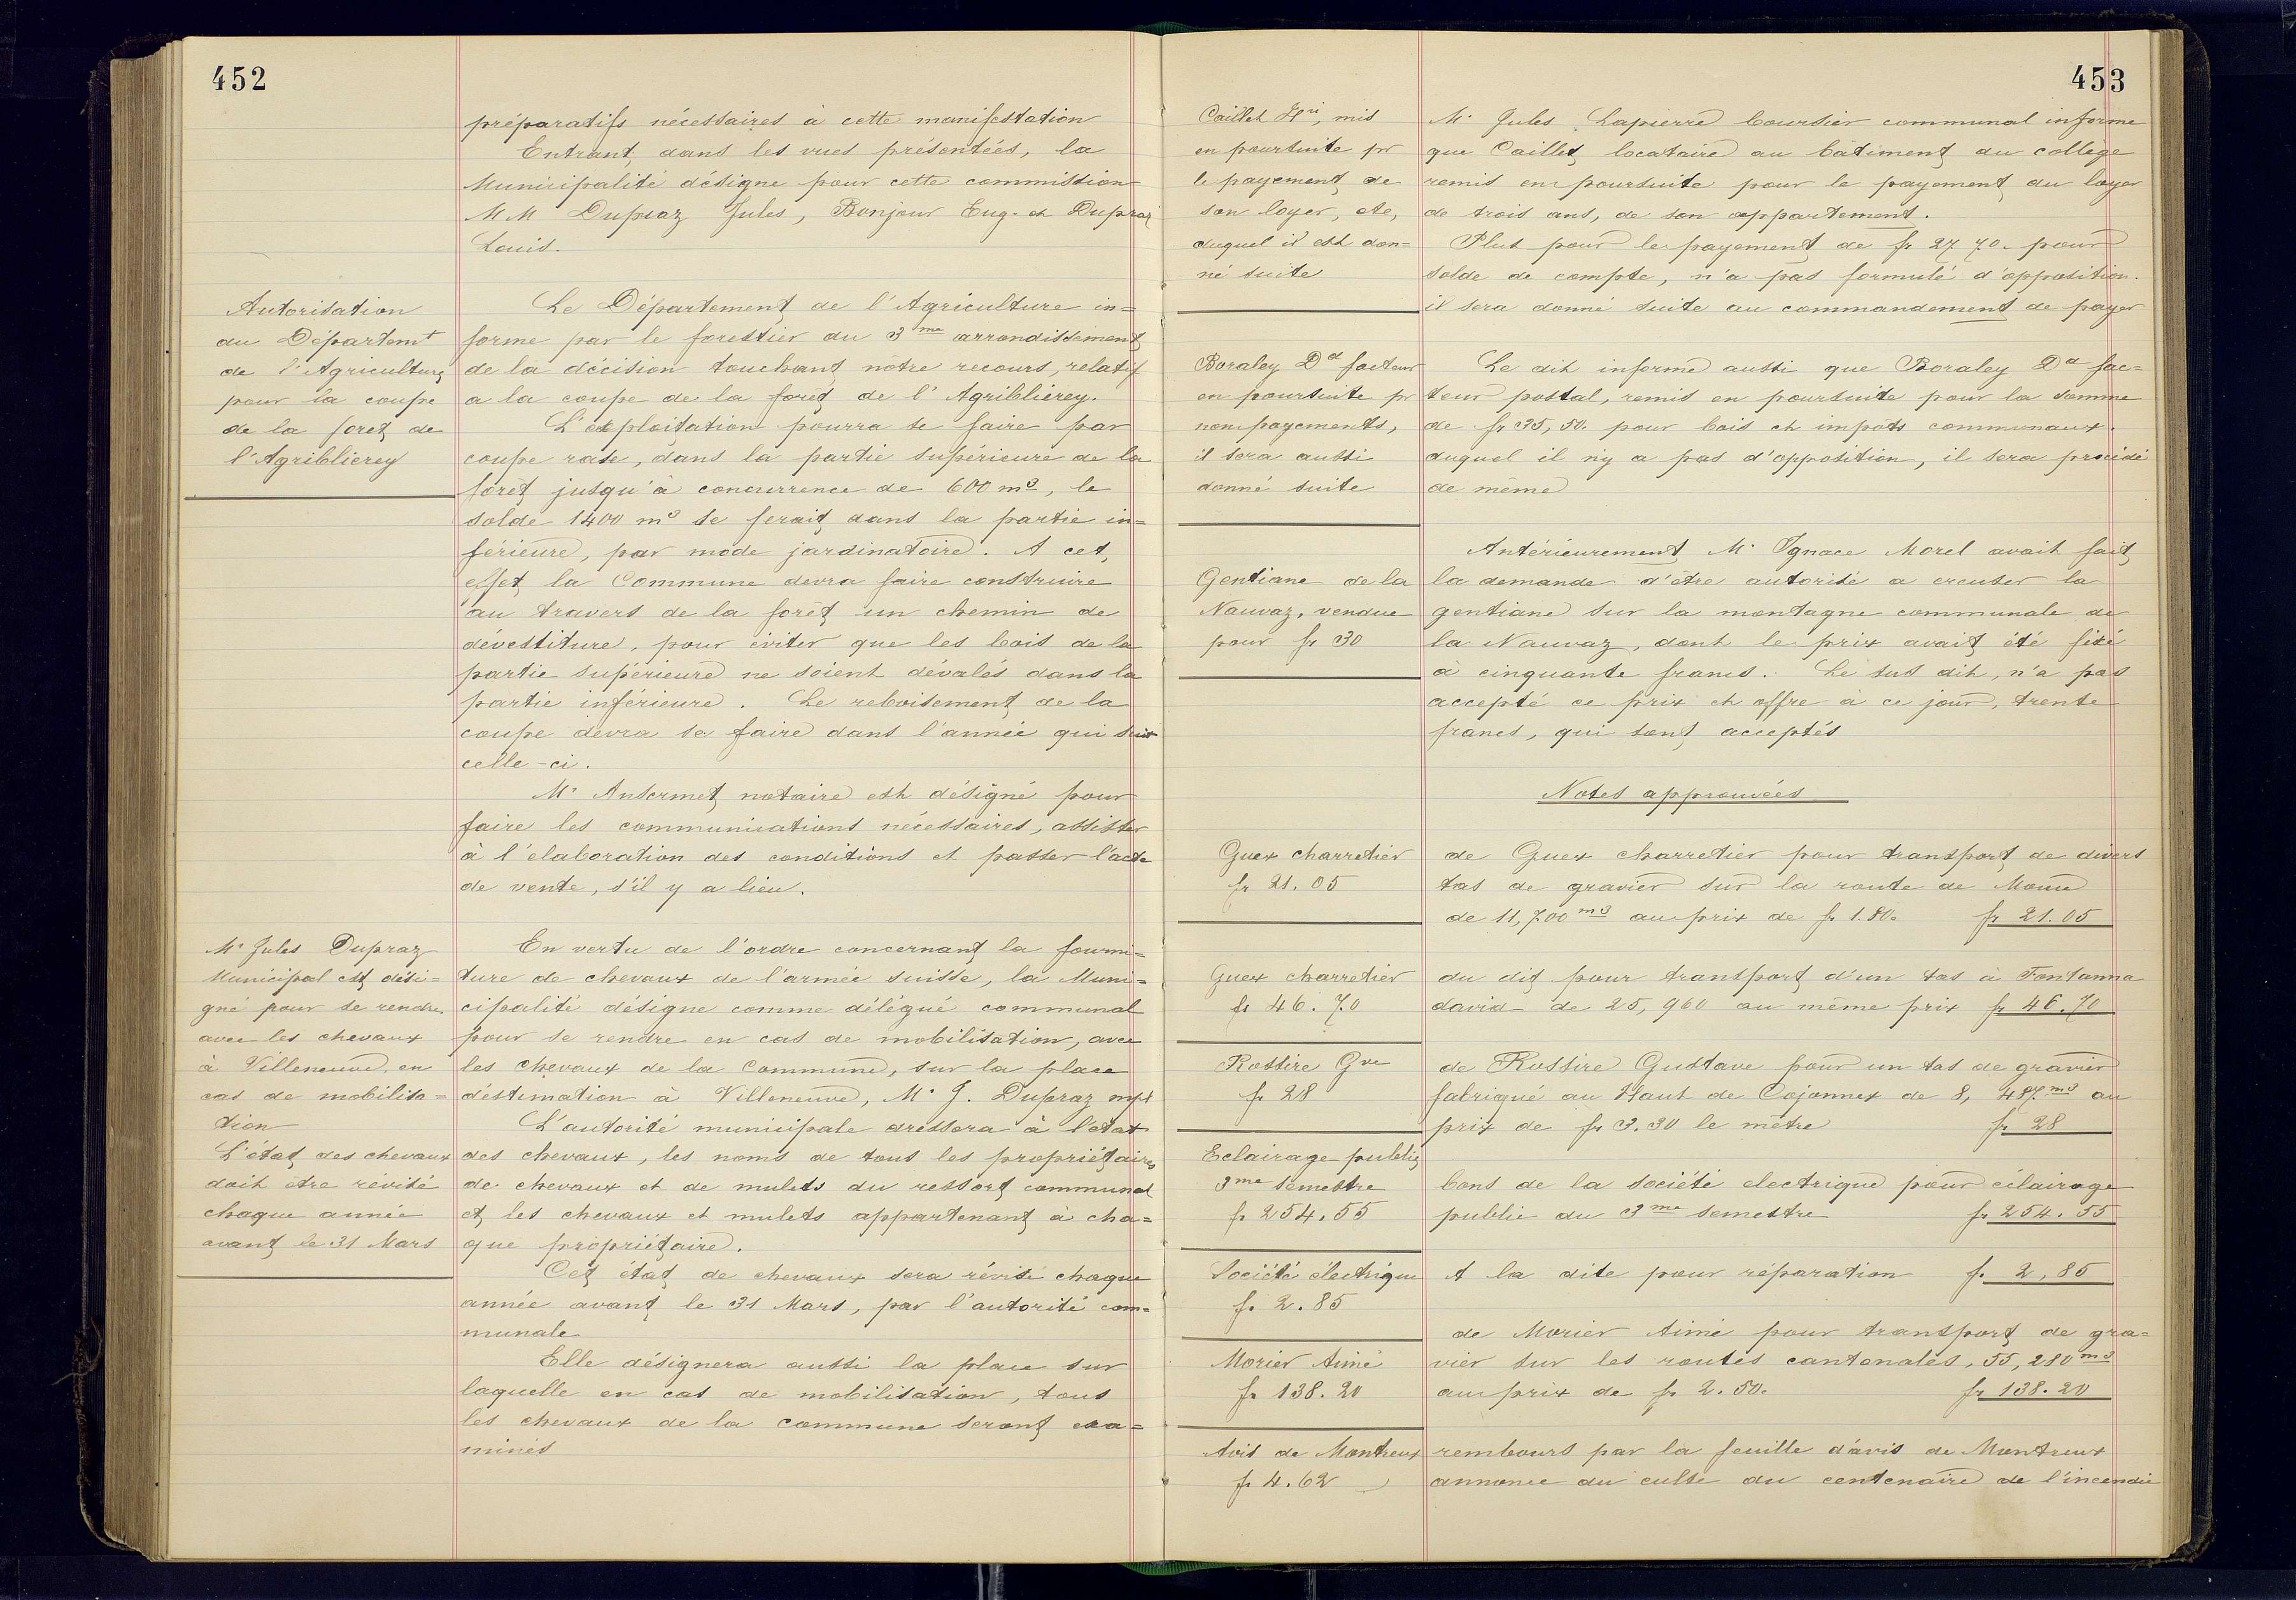 452
préparatifs nécessaires à cette manifestation
Entrant dans les vues présentées, la
Municipalité désigne pour cette commission
MM Dupraz Jules, Bonjour Eug. et Dupraz
Louis.
Autorisation
du Départemt
de l'Agriculture
pour la coupe
de la foret de
l'Agriblierey
Le Département de l'Agriculture in=
forme par le forestier du 3me arrondissement
de la décision touchant nôtre recours, relatif
a la coupe de la forêt de l'Agriblierey.
L'exploitation pourra se faire par
coupe rase, dans la partie supérieure de la
forêt jusqu'à concurrence de 600 m3, le
solde 1400 m3 se ferait dans la partie in=
férieure, par mode jardinatoire. A cet,
effet la Commune devra faire construire
au travers de la forêt un chemin de
dévestiture, pour éviter que les bois de la
partie supérieure ne soient dévalés dans la
partie inférieure. Le reboisement de la
coupe devra se faire dans l'année qui suit
celle-ci.
Mr Ansermet notaire est désigné pour
faire les communications nécessaires, assister
à l'élaboration des conditions et passer l'acte
de vente, s'il y a lieu.
Mr Jules Dupraz
Municipal est dési=
gné pour se rendre
avec les chevaux
à Villeneuve, en
cas de mobilisa=
tion
L'état des chevaux
doit être révisé
chaque année
avant le 31 Mars
En vertu de l'ordre concernant la fourni=
ture de chevaux de l'armée suisse, la Muni=
cipalité désigne comme délégué communal
pour se rendre en cas de mobilisation, avec
les chevaux de la Commune, sur la place
déstination à Villeneuve, Mr J. Dupraz mpl
L'autorité municipale dressera à l'état
des chevaux, les noms de tous les propriétaires
de chevaux et de mulets du ressort communal
et les chevaux et mulets appartenant à cha=
que propriétaire.
Cet état de chevaux sera révisé chaque
année avant le 31 Mars, par l'autorité com=
munale
Elle désignera aussi la place sur
laquelle en cas de mobilisation, tous
les chevaux de la commune seront exa=
minés
453
Caillet Hri, mis
en poursuite pr
le payement de
son loyer, etc,
duquel il est don=
né suite
Mr Jules Lapierre boursier communal informe
que Caillet, locataire au bâtiment du collège
remis en poursuite pour le payement du loyer
de trois ans, de son appartement.
Plus pour le payement de fr 27 70. pour
solde de compte, n'a pas formulé d'opposition.
il sera donné suite au commandement de payer
Boraley Dd facteur
en poursuite pr
non payements,
il sera aussi
donné suite
Le dit informe aussi que Boraley Dd fac=
teur postal, remis en poursuite pour la somme
de fr 35,50. pour bois et impôts communaux.
duquel il n'y a pas d'opposition, il sera procédé
de même
Gentiane de la
Nauvaz, vendue
pour fr 30
Antérieurement Mr Ignace Morel avait fait
la demande d'être autorisé a creuser la
gentiane sur la montagne communale de
la Nauvaz, dont le prix avait été fixé
à cinquante francs. Le sus dit, n'a pas
accepté ce prix et offre à ce jour, trente
francs, qui sont acceptés
Notes approuvées
Guex charretier
fr 21.05
de Guex charretier pour transport de divers
tas de gravier sur la route de
de 11,700 m3 au prix de fr 1.80. fr 21.05
Guex charretier
fr 46.70
du dit pour transport d'un tas à Fontanna
david de 25,960 au même prix fr 46.70
Rossire Gve
fr 28
de Rossire Gustave pour un tas de gravier
fabriqué au Haut de Cojonnex de 8,487 m3 au
prix de fr 3.30 le mètre fr 28
Eclairage public
3me semestre
fr 254.55
bons de la société electrique pour éclairage
public du 3me semestre fr 254.55
Société électrique
fr 2.85
A la dite pour réparation fr 2,85
Morier Aimé
fr 138.20
de Morier Aimé pour transport de gra=
vier sur les routes cantonales, 55,280 m3
au prix de fr 2.50. fr 138.20
Avis de Montreux
fr 4.62
rembours par la feuille d'avis de Montreux
annonce du culte du centenaire de l'incendie